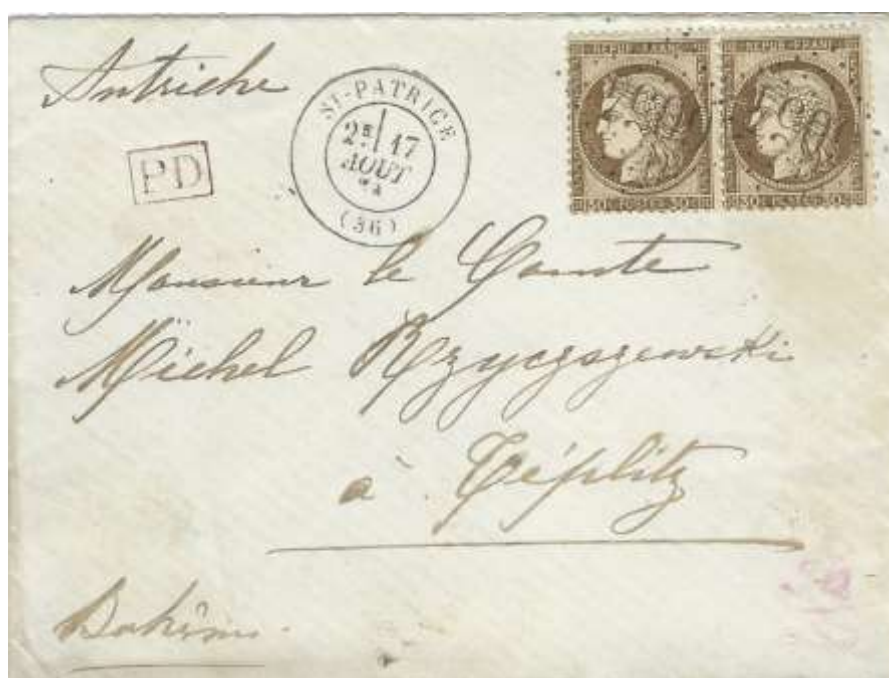 Autriche
ST-PATRICE
2E 17
AOUT
74
(36)
PD
REPUB FRANC
30 C POSTES 30 C
REPUB FRANC
30 C POSTES 30 C
Monsieur le Comte
Michel Rzyczszewski
à Téplitz
Bohême.